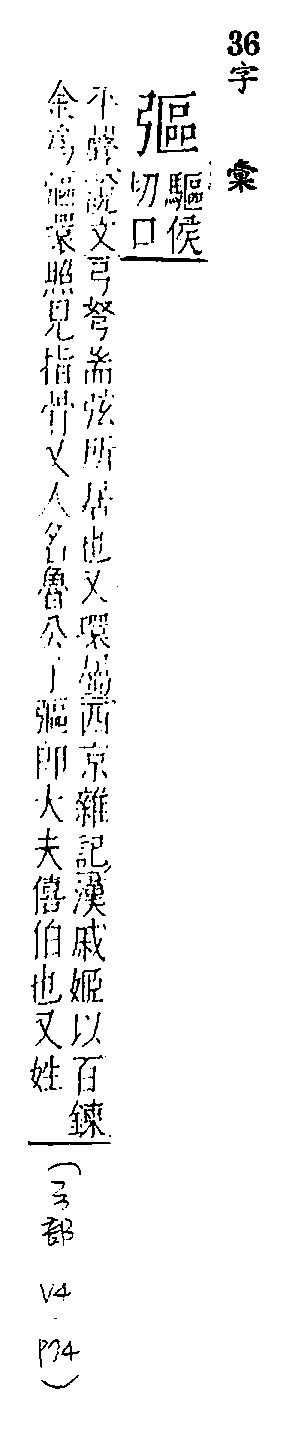 36 字彙
彄
驅侯
切口
平聲說文弓弩耑弦所居也又環屬西京雜記漢戚姬以百鍊
金為彄環照見指骨又人名魯公子彄即大夫僖伯也又姓
(弓部 V4